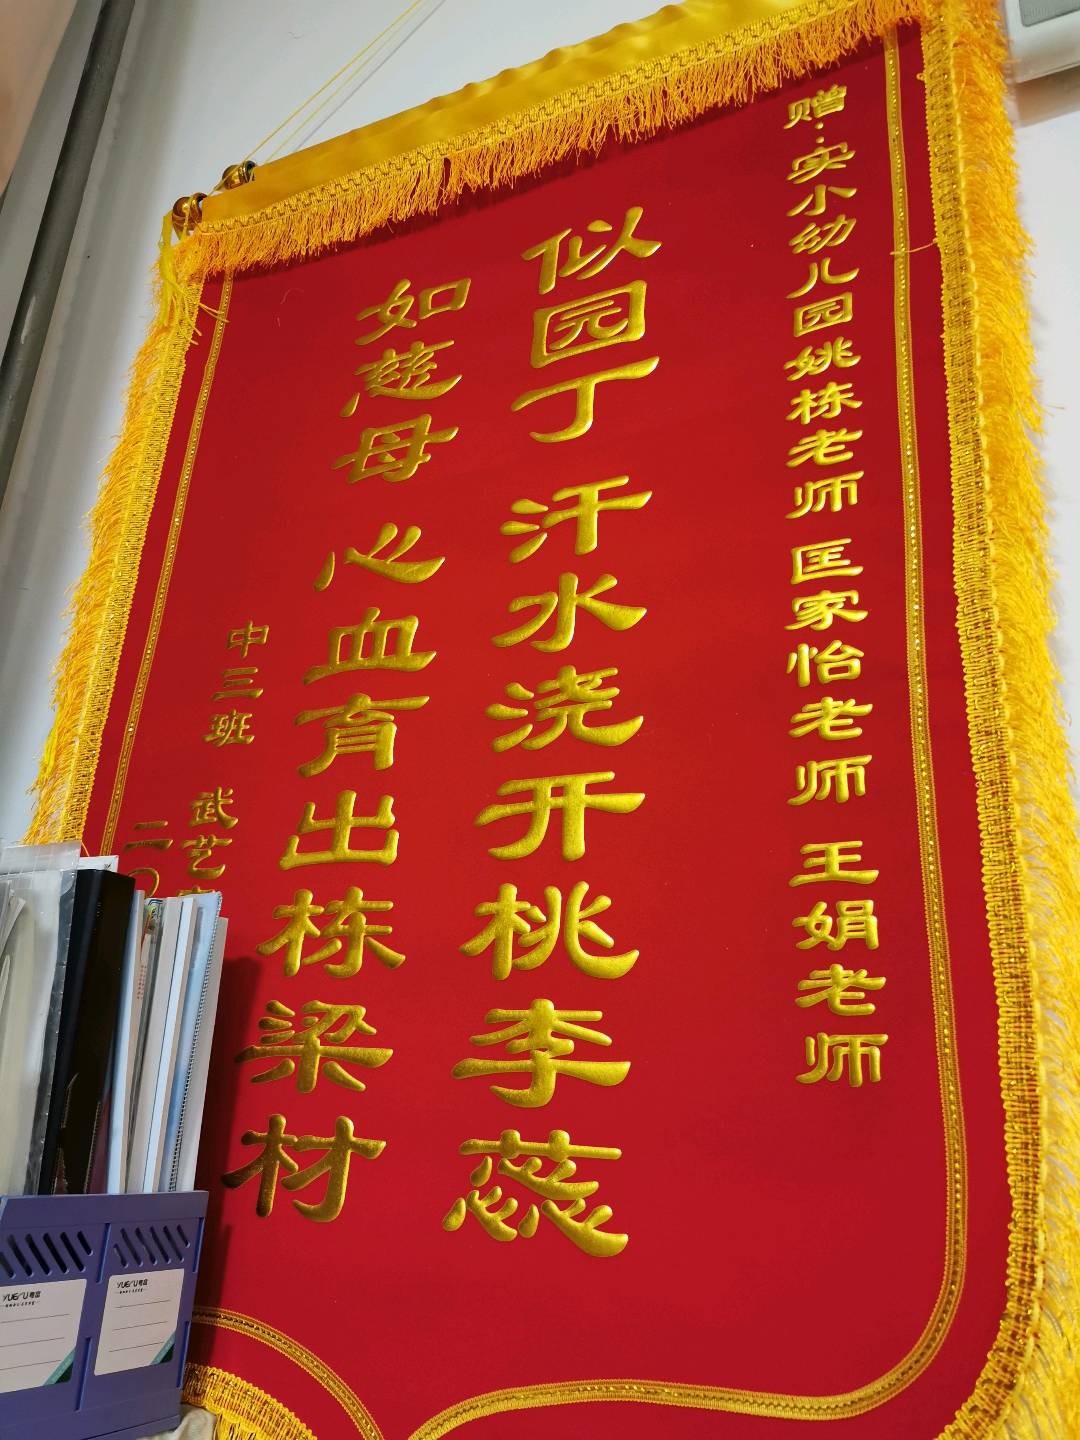 赠:实小幼儿园姚栋老师 匡家怡老师 王娟老师
似园丁 汗水浇开桃李蕊
如慈母 心血育出栋梁材
中三班 武艺
二〇
YUEFU粤富
YUEFU粤富